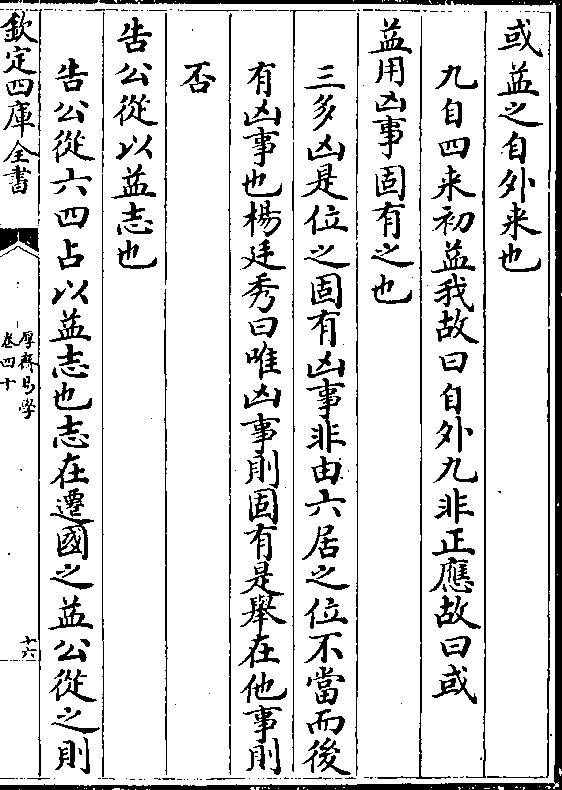 或益之自外来也
九自四来初益我故曰自外九非正應故曰或
益用凶事固有之也
三多凶是位之固有凶事非由六居之位不當而後
有凶事也楊廷秀曰唯凶事則固有是舉在他事則
否
告公從以益志也
告公從六四占以益志也志在遷國之益公從之則
欽定四庫全書
厚齋易學
卷四十
十六